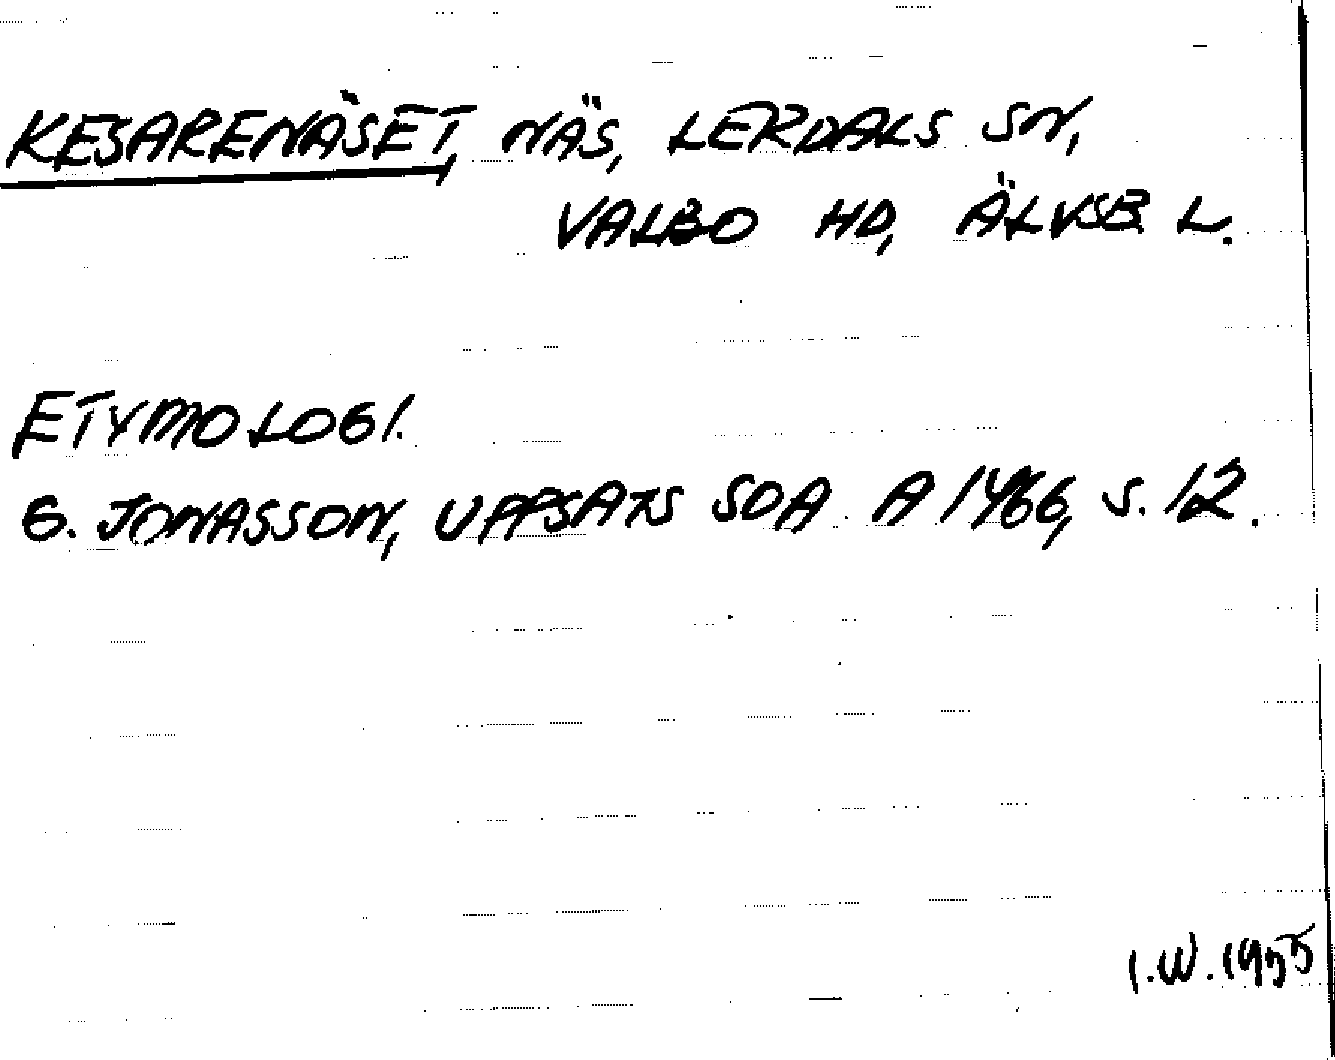 KESARENÄSET, NÄS, LERDALS SN,
VALBO HD, ÄLVSB. L.
ETYMOLOGI.
G. JONASSON, UPPSATS SOA. A 1466, S. 12.
I.W. 1955